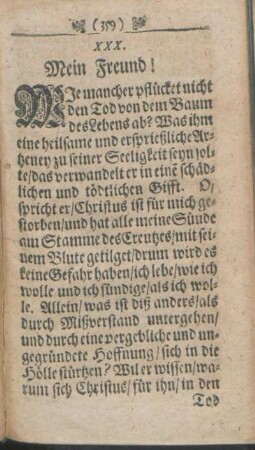 (359)
XXX.
Mein Freund!
WIe mancher pflücket nicht
den Tod von dem Baum
des Lebens ab? Was ihm
eine heilsame und ersprießliche Ar-
tzeney zu seiner Seeligkeit seyn sol-
te/das verwandelt er in einẽ schäd-
lichen und tödtlichen Gifft. O,
spricht er/Christus ist für mich ge-
storben/und hat alle meine Sünde
am Stamme des Creutzes/mit sei-
nem Blute getilget/drum wird es
keine Gefahr haben/ich lebe/wie ich
wolle und ich sündige/als ich wol-
le. Allein/was ist diß anders/als
durch Mißverstand untergehen/
und durch eine vergebliche und un-
gegründete Hoffnung/sich in die
Hölle stürtzen? Wil er wissen/wa-
rum sich Christus/für ihn/in den
Tod